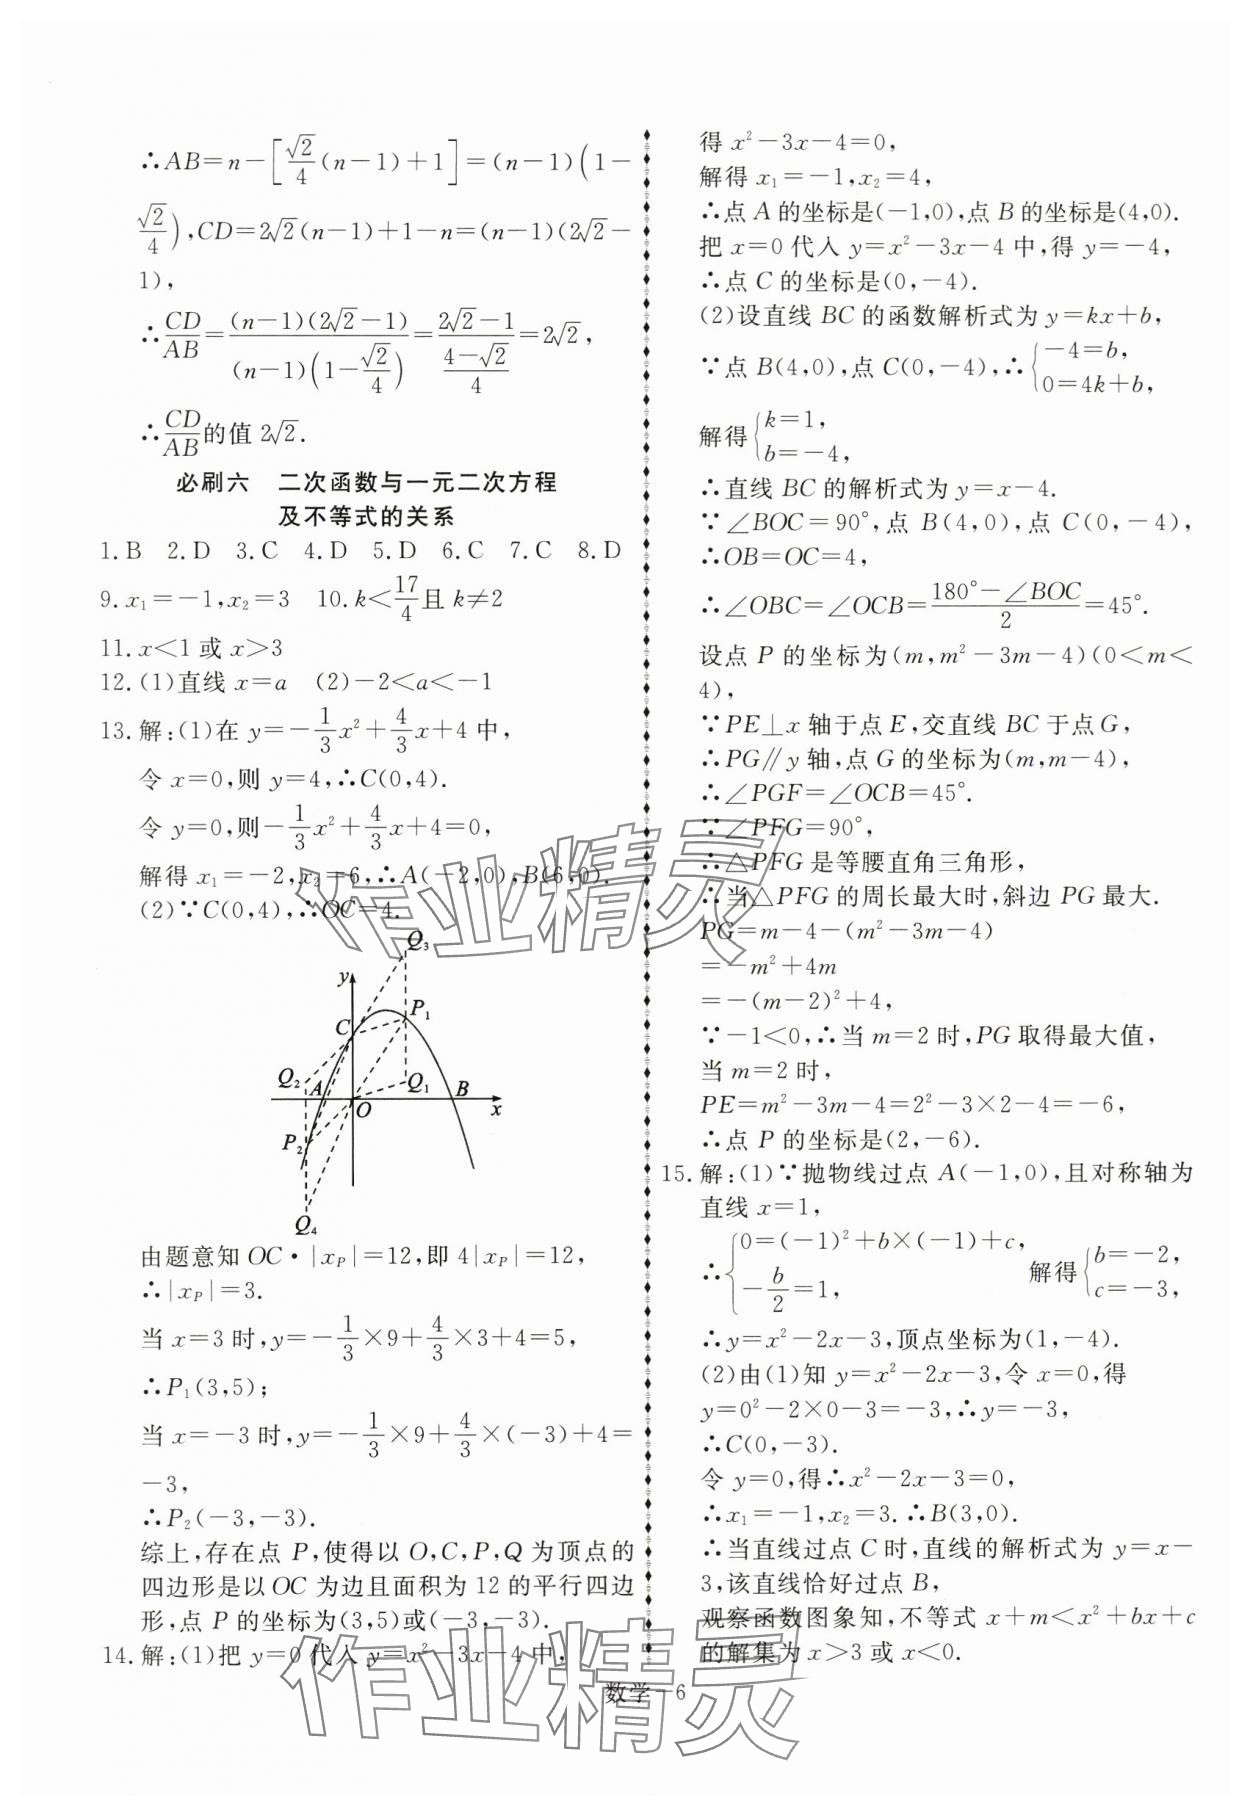 ∴AB=n-[√2/4(n-1)+1]=(n-1)(1-
√2/4),CD=2√2(n-1)+1-n=(n-1)(2√2-
1),
∴CD/AB=(n-1)(2√2-1)/((n-1)(1-√2/4))=(2√2-1)/((4-√2)/4)=2√2,
∴CD/AB的值2√2.
必刷六 二次函数与一元二次方程
及不等式的关系
1.B 2.D 3.C 4.D 5.D 6.C 7.C 8.D
9.x₁=-1,x₂=3 10.k<17/4且k≠2
11.x<1或x>3
12.(1)直线x=a (2)-2<a<-1
13.解:(1)在y=-1/3x²+4/3x+4中,
令x=0,则y=4,∴C(0,4).
令y=0,则-1/3x²+4/3x+4=0,
解得x₁=-2,x₂=6,∴A(-2,0),B(6,0).
(2)∵C(0,4),∴OC=4.
Q₃
y
C P₁
Q₂ A Q₁ B
O x
P₂
Q₄
由题意知OC·|xP|=12,即4|xP|=12,
∴|xP|=3.
当x=3时,y=-1/3×9+4/3×3+4=5,
∴P₁(3,5);
当x=-3时,y=-1/3×9+4/3×(-3)+4=
-3,
∴P₂(-3,-3).
综上,存在点P,使得以O,C,P,Q为顶点的
四边形是以OC为边且面积为12的平行四边
形,点P的坐标为(3,5)或(-3,-3).
14.解:(1)把y=0代入y=x²-3x-4中,
得x²-3x-4=0,
解得x₁=-1,x₂=4,
∴点A的坐标是(-1,0),点B的坐标是(4,0).
把x=0代入y=x²-3x-4中,得y=-4,
∴点C的坐标是(0,-4).
(2)设直线BC的函数解析式为y=kx+b,
∵点B(4,0),点C(0,-4),∴{-4=b,
0=4k+b,
解得{k=1,
b=-4,
∴直线BC的解析式为y=x-4.
∵∠BOC=90°,点B(4,0),点C(0,-4),
∴OB=OC=4,
∴∠OBC=∠OCB=(180°-∠BOC)/2=45°.
设点P的坐标为(m,m²-3m-4)(0<m<
4),
∵PE⊥x轴于点E,交直线BC于点G,
∴PG∥y轴,点G的坐标为(m,m-4),
∴∠PGF=∠OCB=45°.
∵∠PFG=90°,
∴△PFG是等腰直角三角形,
∴当△PFG的周长最大时,斜边PG最大.
PG=m-4-(m²-3m-4)
=-m²+4m
=-(m-2)²+4,
∵-1<0,∴当m=2时,PG取得最大值,
当m=2时,
PE=m²-3m-4=2²-3×2-4=-6,
∴点P的坐标是(2,-6).
15.解:(1)∵抛物线过点A(-1,0),且对称轴为
直线x=1,
∴{0=(-1)²+b×(-1)+c,
-b/2=1, 解得{b=-2,
c=-3,
∴y=x²-2x-3,顶点坐标为(1,-4).
(2)由(1)知y=x²-2x-3,令x=0,得
y=0²-2×0-3=-3,∴y=-3,
∴C(0,-3).
令y=0,得∴x²-2x-3=0,
∴x₁=-1,x₂=3.∴B(3,0).
∴当直线过点C时,直线的解析式为y=x-
3,该直线恰好过点B,
观察函数图象知,不等式x+m<x²+bx+c
的解集为x>3或x<0.
数学-6
作业精灵
作业精灵